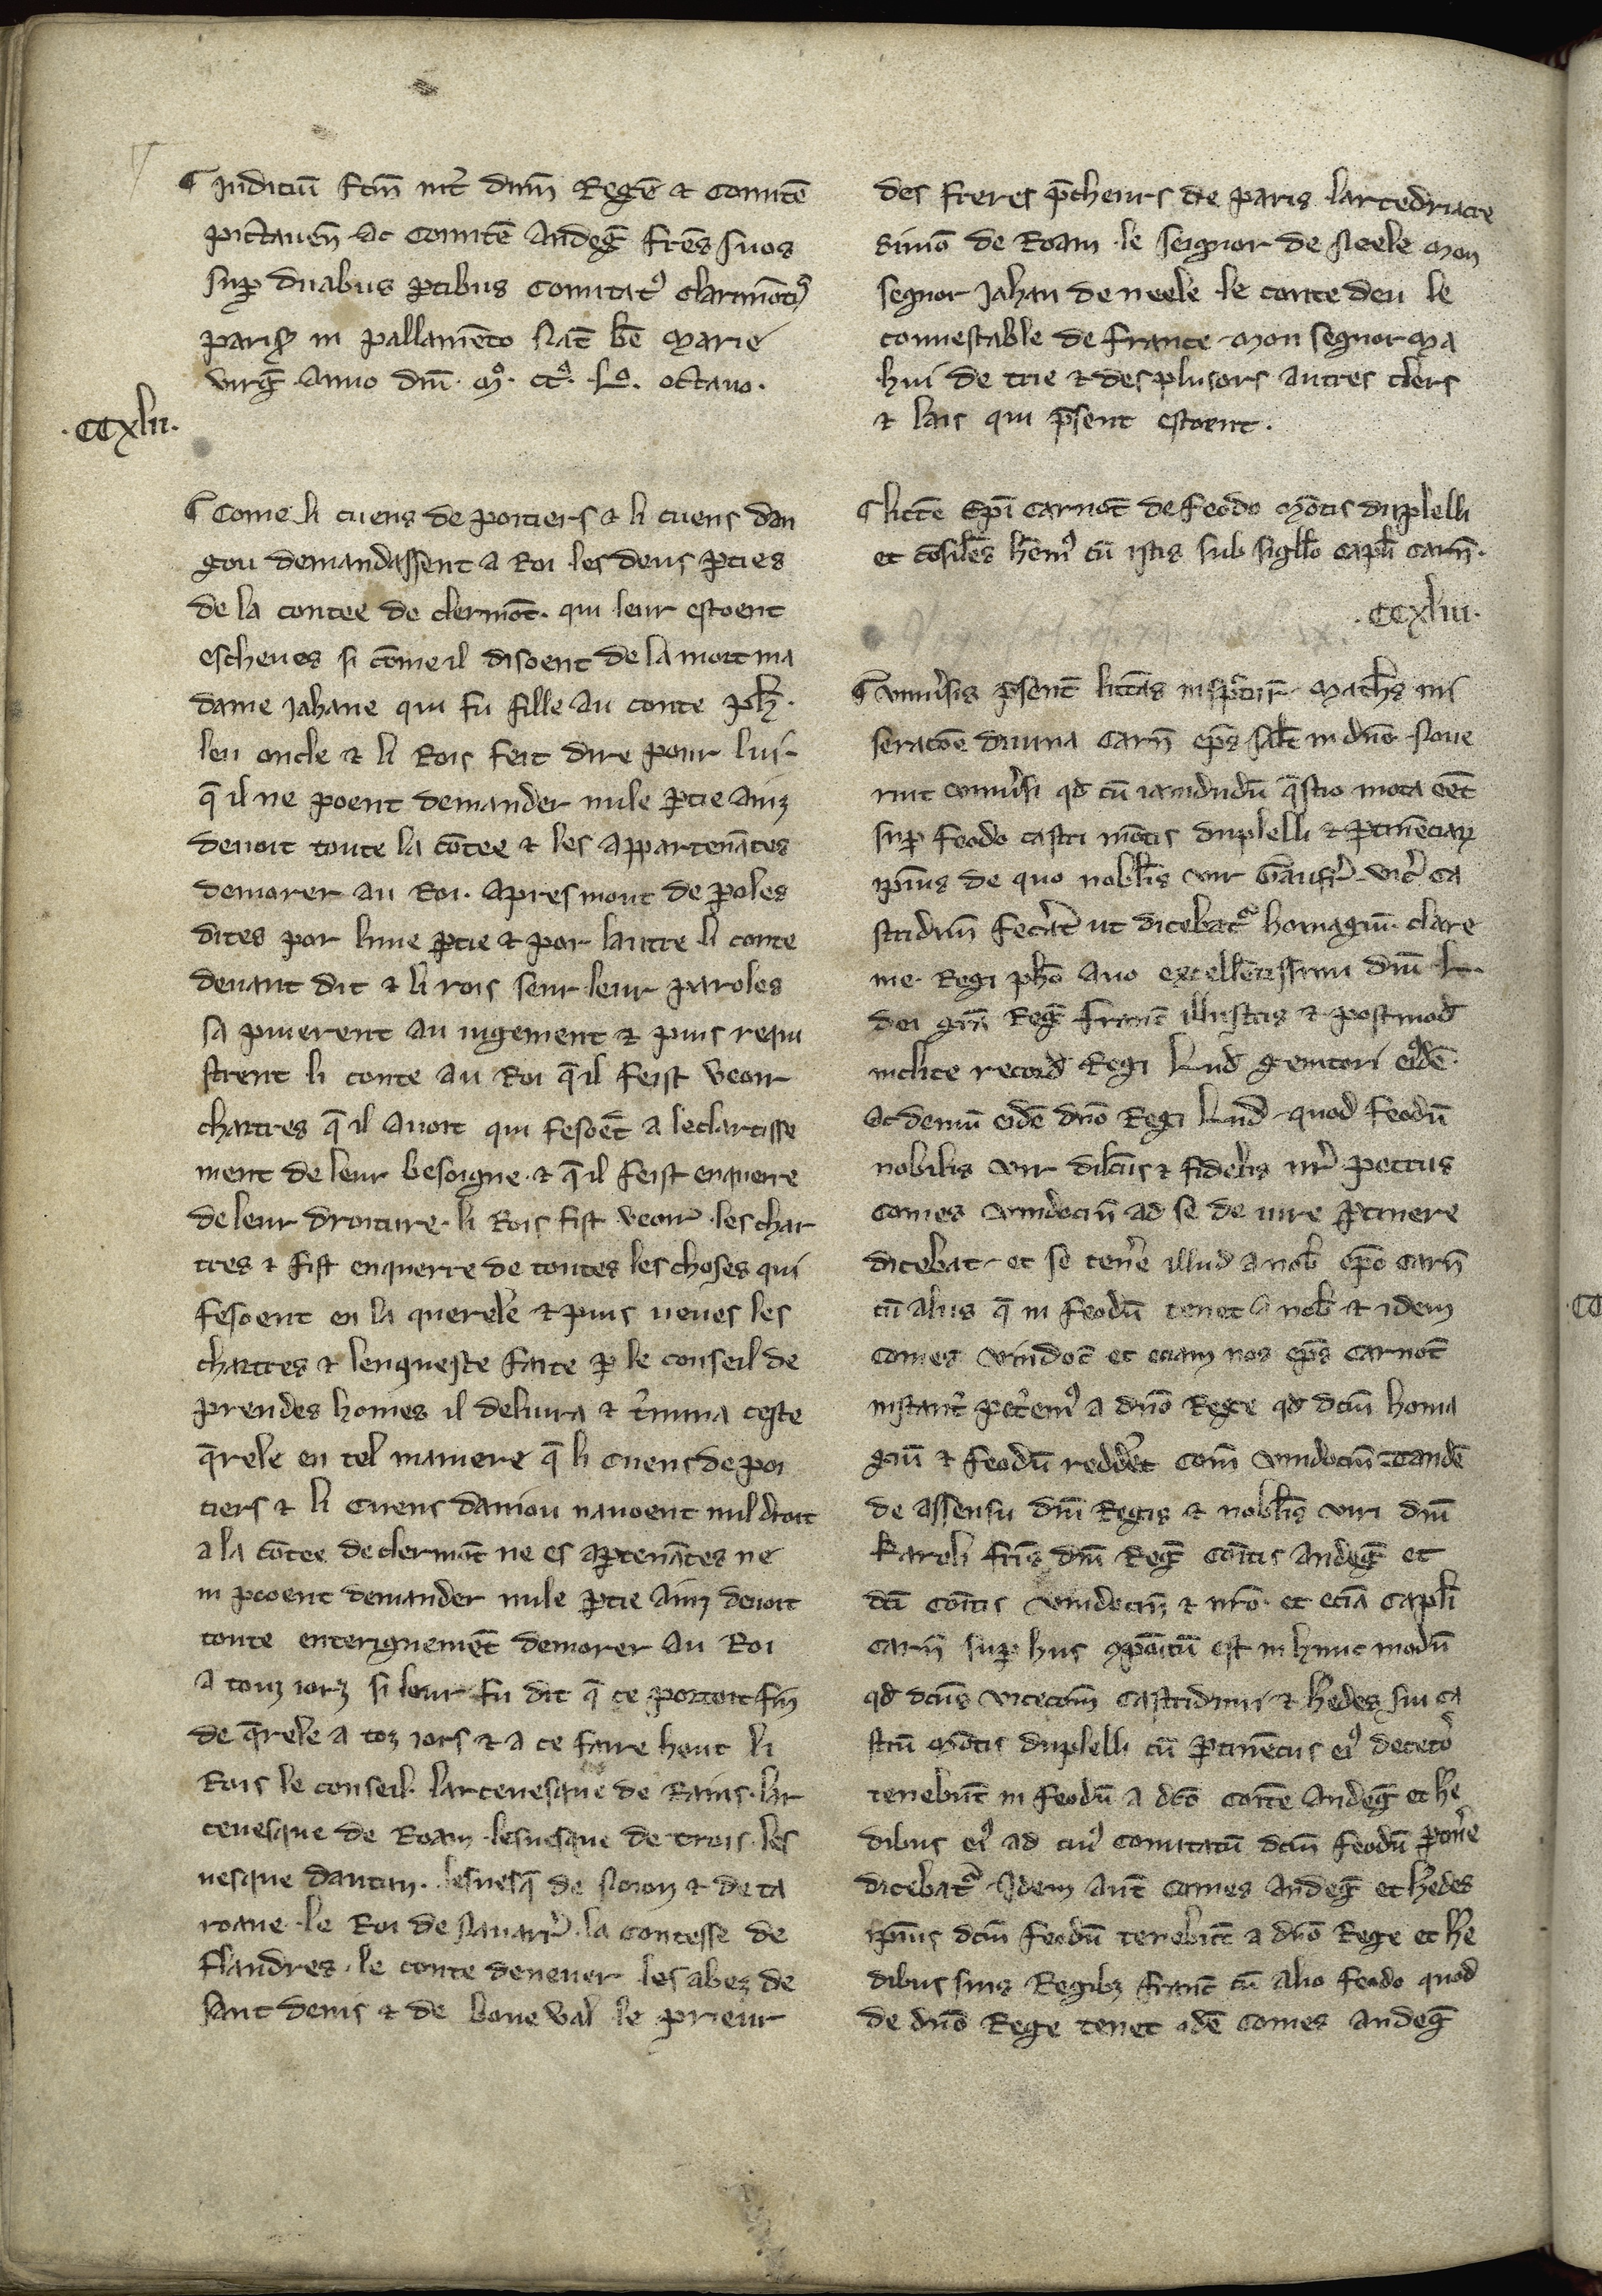 ¶ Judiciū fcm̄ int̄ dnm̄ Regē ⁊ Comitē
pictauen̄ ac Comitē Andeḡ frēs suos
suꝑ duabus ꝑtibus Comitatꝰ Clarimōtꝭ
parisꝭ in pallamēto Nat̄ bē Marie
virḡ Anno dnī. mͦ. ccͦ. Lͦ. octauo.
.CCxlii.
¶ Come li cuens de poitiers ⁊ li cuens dan
gou demandassent a Roi les deus ꝑties
de la contee de clermōt. qui leur estoent
escheues si cōme il disoent de la mort ma
dame Jahane qui fu fille au conte ph̄.
leu oncle ⁊ li Rois feit dire pour lui.
q̄ il ne poent demander nule ꝑtie ainz
deuoit toute la cōtee ⁊ les appartenātes
demorer au Roi. apres mout de ꝑoles
dites por lune ꝑtie ⁊ por lautre li conte
deuant dit ⁊ li rois seur leur paroles
sa puierent au iugement ⁊ puis requi
strent li conte au Roi q̄ il feist veoir
chartres q̄ il auoit qui fesoēt a leclarcisse
ment de leur besoigne. ⁊ q̄ il feist enquerre
de leur droiture. li Rois fist veoir les char
tres ⁊ fist enquerre de toutes les choses qui
fesoient en la querele ⁊ puis ueues les
chartres ⁊ lenqueste faite ꝑ le conseil de
preudes homes il deliura ⁊ t̄mina ceste
q̄rele en tel maniere q̄ li cuens de poi
tiers ⁊ li cuens daniou nauoent nul droit
a la cōtee de clermōt ne es aꝑtenātes ne
ni pooent demander nule ꝑtie ainz deuoit
toute enterignemēt demorer au Roi
a touz iorz si leur fu dit q̄ ce portoit fin
de q̄rele a toz iors ⁊ a ce faire heut li
Rois le conseil. larceuesque de Rains. lar
ceuesque de Roam. lesuesque de trois. les
uesque dautun. lesuesq̄ de Noion ⁊ de ta
roane. le Roi de Nauarr̄. la contesse de
flandres. le conte deneuer les abez de
saint denis ⁊ de boneval le prieur
des freres p̄cheurs de paris larcediacre
simō de Roam. le seignor de Neele Mon
segnor Jahan de neele le conte deu le
connestable de france. mon segnor Ma
hui de trie ⁊ des plusors autres clers
⁊ lais qui p̄sent estoent.
¶ littē Ep̄i Carnot̄ de feodo Mōtis dupleili
et cōsiles h̄emꝰ cū istis sub sigll̄o Capl̄i Carn̄.
.CCxliii.
¶ vniu̓sis p̄sent̄ litt̄as insp̄ctur̄. Math̄s mi
seracōe diuina Carn̄ ep̄s sal̄t in dnō. Noue
rint vniu̓si qd̄ cū iamdudū q̄stio mota eēt
suꝑ feodo castri mōtis dupleili ⁊ ꝑtinēciaꝝ
ip̄ius de quo nobil̄is vir Gaufr̄. vic̄ Ca
stridun̄ fec̓at ut dicebatᷣ homagiū. clare
me. Regi ph̄o auo excellētissimi dnī L.
dei gr̄a Reḡ franc̄ illustris ⁊ postmod̄
inclite record̄ Regi Lud̄ genitori eiꝰdē.
ac demū eidē dnō Regi Lud̄. quod feodū
nobilis vir dilc̄us ⁊ fidelis nr̄ petrus
Comes vindocin̄ ad se de iure ꝑtinere
dicebat. et se ten̓e illud a nob̄ ep̄o Carn̄
cū aliis q̄ in feodū tenet a nob̄ ⁊ idem
Comes vindoc̄ et eciam nos ep̄s Carnot̄
instant̄ pet̓emꝰ a dnō Rege qd̄ dcm̄ homa
giū ⁊ feodū redderet Com̄ vindocin̄ Tandē
de assensu dnī Regis ⁊ nobil̄is viri dnī
Karoli fr̄is dnī Reḡ Cōitis Andeḡ et
dcī Cōitis vindocin̄ ⁊ nr̄o. et eciā Capl̄i
Carn̄ suꝑ hiis ꝯpōitū est in hunc modū
qd̄ dcūs vicecom̄ Castriduni ⁊ h̄edes sui ca
strū Mōtis dupleili cū ꝑtinēciis eiꝰ decetō
tenebūt in feodū a dcō Coīte Andeḡ et he
dibus eiꝰ ad cuiꝰ Comitatū dcm̄ feodū ꝑtin̓e
dicebatᷣ. Idem aut̄ Comes Andeḡ et h̄edes
ip̄ius dcm̄ feodū tenebūt a dnō Rege et he
dibus suis Regibꝫ franc̄ cū alio feodo quod
de dnō Rege tenet idē Comes Andeḡ